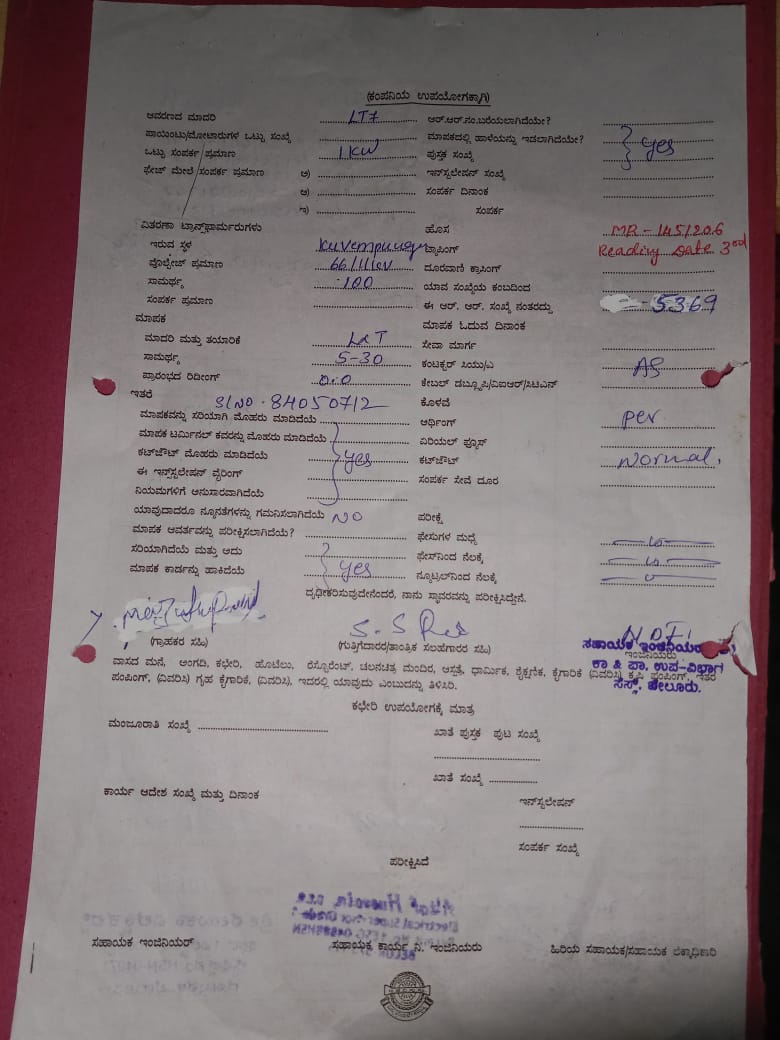 (ಕಂಪನಿಯ ಉಪಯೋಗಕ್ಕಾಗಿ)
ಆವರಣದ ಮಾದರಿ LT7 ಆರ್.ಆರ್.ನಂ.ಬರೆಯಲಾಗಿದೆಯೇ?
ಪಾಯಿಂಟು/ಮೋಟಾರುಗಳ ಒಟ್ಟು ಸಂಖ್ಯೆ ಮಾಪಕದಲ್ಲಿ ಹಾಳೆಯನ್ನು ಇಡಲಾಗಿದೆಯೇ? yes
ಒಟ್ಟು ಸಂಪರ್ಕ ಪ್ರಮಾಣ 1KW ಪುಸ್ತಕ ಸಂಖ್ಯೆ
ಫೇಜ್ ಮೇಲೆ ಸಂಪರ್ಕ ಪ್ರಮಾಣ ಅ) ಇನ್‌ಸ್ಟಲೇಷನ್ ಸಂಖ್ಯೆ
ಆ) ಸಂಪರ್ಕ ದಿನಾಂಕ
ಇ) ಸಂಪರ್ಕ
ವಿತರಣಾ ಟ್ರಾನ್ಸ್‌ಫಾರ್ಮರುಗಳು ಹೊಸ MR-145/206
ಇರುವ ಸ್ಥಳ ಟ್ಯಾಪಿಂಗ್ Reading Date 3rd
ವೊಲ್ಟೇಜ್ ಪ್ರಮಾಣ 66/11kv ದೂರವಾಣಿ ಕ್ರಾಸಿಂಗ್
ಸಾಮರ್ಥ್ಯ 100 ಯಾವ ಸಂಖ್ಯೆಯ ಕಂಬದಿಂದ
ಸಂಪರ್ಕ ಪ್ರಮಾಣ ಈ ಆರ್. ಆರ್. ಸಂಖ್ಯೆ ನಂತರದ್ದು -5369
ಮಾಪಕ ಮಾಪಕ ಓದುವ ದಿನಾಂಕ
ಮಾದರಿ ಮತ್ತು ತಯಾರಿಕೆ L&T ಸೇವಾ ಮಾರ್ಗ
ಸಾಮರ್ಥ್ಯ 5-30 ಕಂಟಕ್ಟರ್ ಸಿಯು/ಎ
ಪ್ರಾರಂಭದ ರಿಡೀಂಗ್ 0.0 ಕೇಬಲ್ ಡಬ್ಲ್ಯೂಪಿ/ವಿಐಆರ್/ಸಿಟಿಎನ್
ಇತರೆ Sl No. 84050712 ಕೊಳವೆ
ಮಾಪಕವನ್ನು ಸರಿಯಾಗಿ ಮೊಹರು ಮಾಡಿದೆಯೆ ಆರ್ಥಿಂಗ್ per
ಮಾಪಕ ಟರ್ಮಿನಲ್ ಕವರನ್ನು ಮೊಹರು ಮಾಡಿದೆಯೆ ಏರಿಯಲ್ ಫ್ಯೂಸ್
ಕಟ್‌ಔಟ್ ಮೊಹರು ಮಾಡಿದೆಯೆ yes ಕಟ್‌ಔಟ್ Normal,
ಈ ಇನ್ಸ್‌ಟಲೇಷನ್ ವೈರಿಂಗ್ ಸಂಪರ್ಕ ಸೇವೆ ದೂರ
ನಿಯಮಗಳಿಗೆ ಅನುಸಾರವಾಗಿದೆಯೆ
ಯಾವುದಾದರೂ ನ್ಯೂನತೆಗಳನ್ನು ಗಮನಿಸಲಾಗಿದೆಯೆ NO ಪರೀಕ್ಷೆ
ಮಾಪಕ ಆವರ್ತವನ್ನು ಪರೀಕ್ಷಿಸಲಾಗಿದೆಯೆ? ಫೇಸುಗಳ ಮಧ್ಯೆ
ಸರಿಯಾಗಿದೆಯೆ ಮತ್ತು ಅದು ಫೇಸ್‌ನಿಂದ ನೆಲಕ್ಕೆ
ಮಾಪಕ ಕಾರ್ಡನ್ನು ಹಾಕಿದೆಯೆ yes ನ್ಯೂಟ್ರಲ್‌ನಿಂದ ನೆಲಕ್ಕೆ
ದೃಢೀಕರಿಸುವುದೇನೆಂದರೆ, ನಾನು ಸ್ಥಾವರವನ್ನು ಪರೀಕ್ಷಿಸಿದ್ದೇನೆ.
(ಗ್ರಾಹಕರ ಸಹಿ) (ಗುತ್ತಿಗೆದಾರರ/ತಾಂತ್ರಿಕ ಸಲಹೆಗಾರರ ಸಹಿ) ಸಹಾಯಕ ಇಂಜಿನಿಯರ
ಇಂಜಿನಿಯರು
ಕಾ & ಪಾ. ಉಪ-ವಿಭಾಗ
ಸೆಸ್ಕ್, ಬೇಲೂರು.
ವಾಸದ ಮನೆ, ಅಂಗಡಿ, ಕಛೇರಿ, ಹೊಟೆಲು, ರೆಸ್ಟೋರೆಂಟ್, ಚಲನಚಿತ್ರ ಮಂದಿರ, ಆಸ್ಪತ್ರೆ, ಧಾರ್ಮಿಕ, ಶೈಕ್ಷಣಿಕ, ಕೈಗಾರಿಕೆ (ವಿವರಿಸಿ) ಕೃಷಿ ಪಂಪಿಂಗ್, ಇತರ
ಪಂಪಿಂಗ್, (ವಿವರಿಸಿ) ಗೃಹ ಕೈಗಾರಿಕೆ, (ವಿವರಿಸಿ), ಇದರಲ್ಲಿ ಯಾವುದು ಎಂಬುದನ್ನು ತಿಳಿಸಿರಿ.
ಕಛೇರಿ ಉಪಯೋಗಕ್ಕೆ ಮಾತ್ರ
ಮಂಜೂರಾತಿ ಸಂಖ್ಯೆ ಖಾತೆ ಪುಸ್ತಕ ಪುಟ ಸಂಖ್ಯೆ
ಖಾತೆ ಸಂಖ್ಯೆ
ಕಾರ್ಯ ಆದೇಶ ಸಂಖ್ಯೆ ಮತ್ತು ದಿನಾಂಕ ಇನ್‌ಸ್ಟಲೇಷನ್
ಸಂಪರ್ಕ ಸಂಖ್ಯೆ
ಪರೀಕ್ಷಿಸಿದೆ
ಸಹಾಯಕ ಇಂಜಿನಿಯರ್ ಸಹಾಯಕ ಕಾರ್ಯ ನಿ. ಇಂಜಿನಿಯರು ಹಿರಿಯ ಸಹಾಯಕ/ಸಹಾಯಕ ಲೆಕ್ಕಾಧಿಕಾರಿ